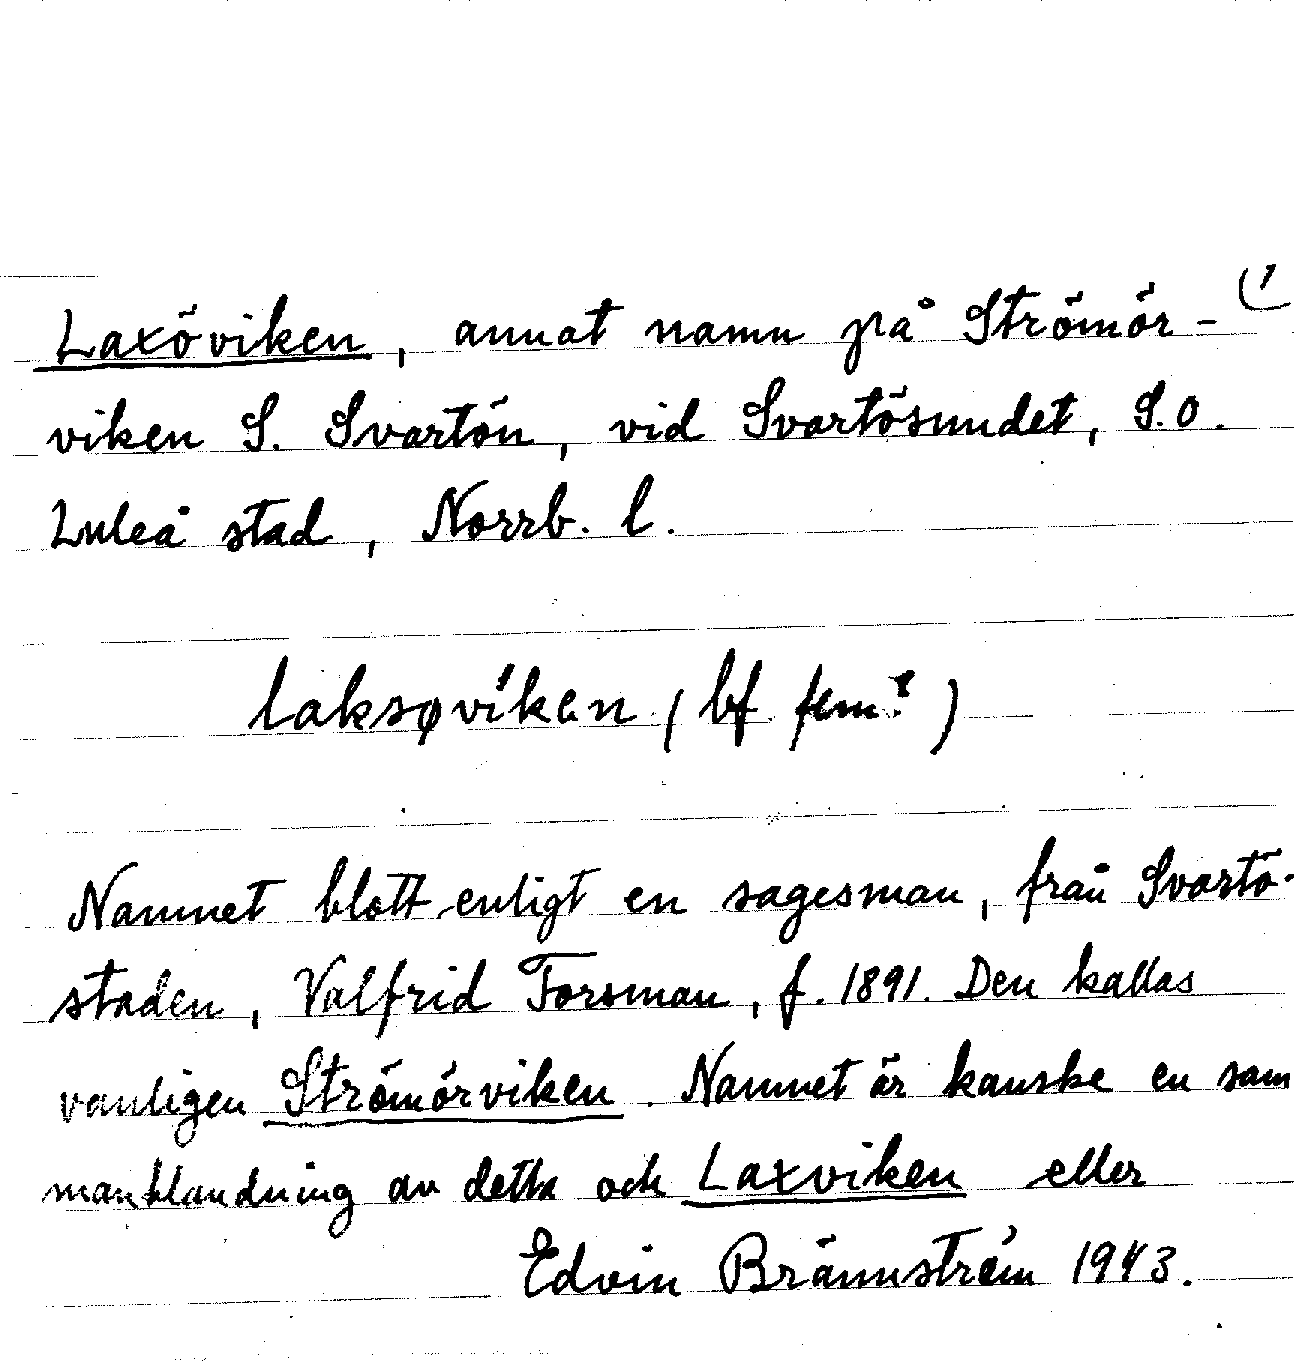 Laxöviken, annat namn på Strömör- (1
viken S. Svartön, vid Svartösundet, S.O.
Luleå stad, Norrb. l.
laksøviken (bf fem?)
Namnet blott enligt en sagesman, från Svartö-
staden, Valfrid Forsman, f. 1891. Den kallas
vanligen Strömörviken. Namnet är kanske en sam
manblandning av detta och Laxviken eller
Edvin Brännström 1943.